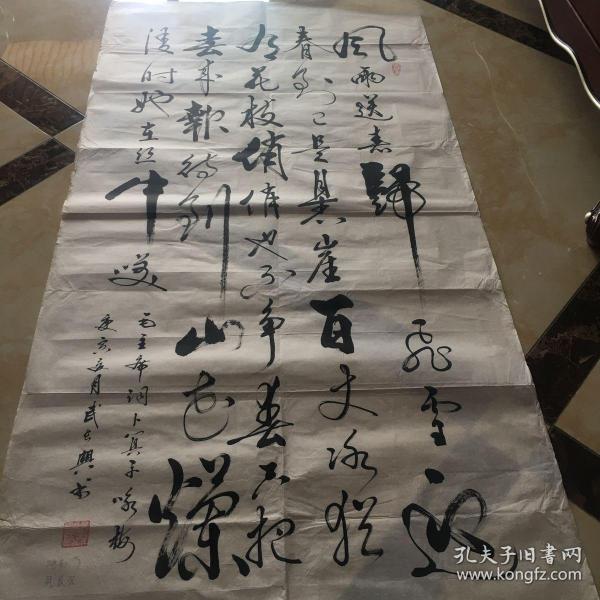 風雨送春歸飛雪迎
春到已是悬崖百丈冰犹
有花枝俏俏也不争春只把
春来報待到山花爛
漫时她在丛中笑
毛主席词卜算子咏梅
癸亥五月武興书
孔夫子旧书网
www.kongfz.com